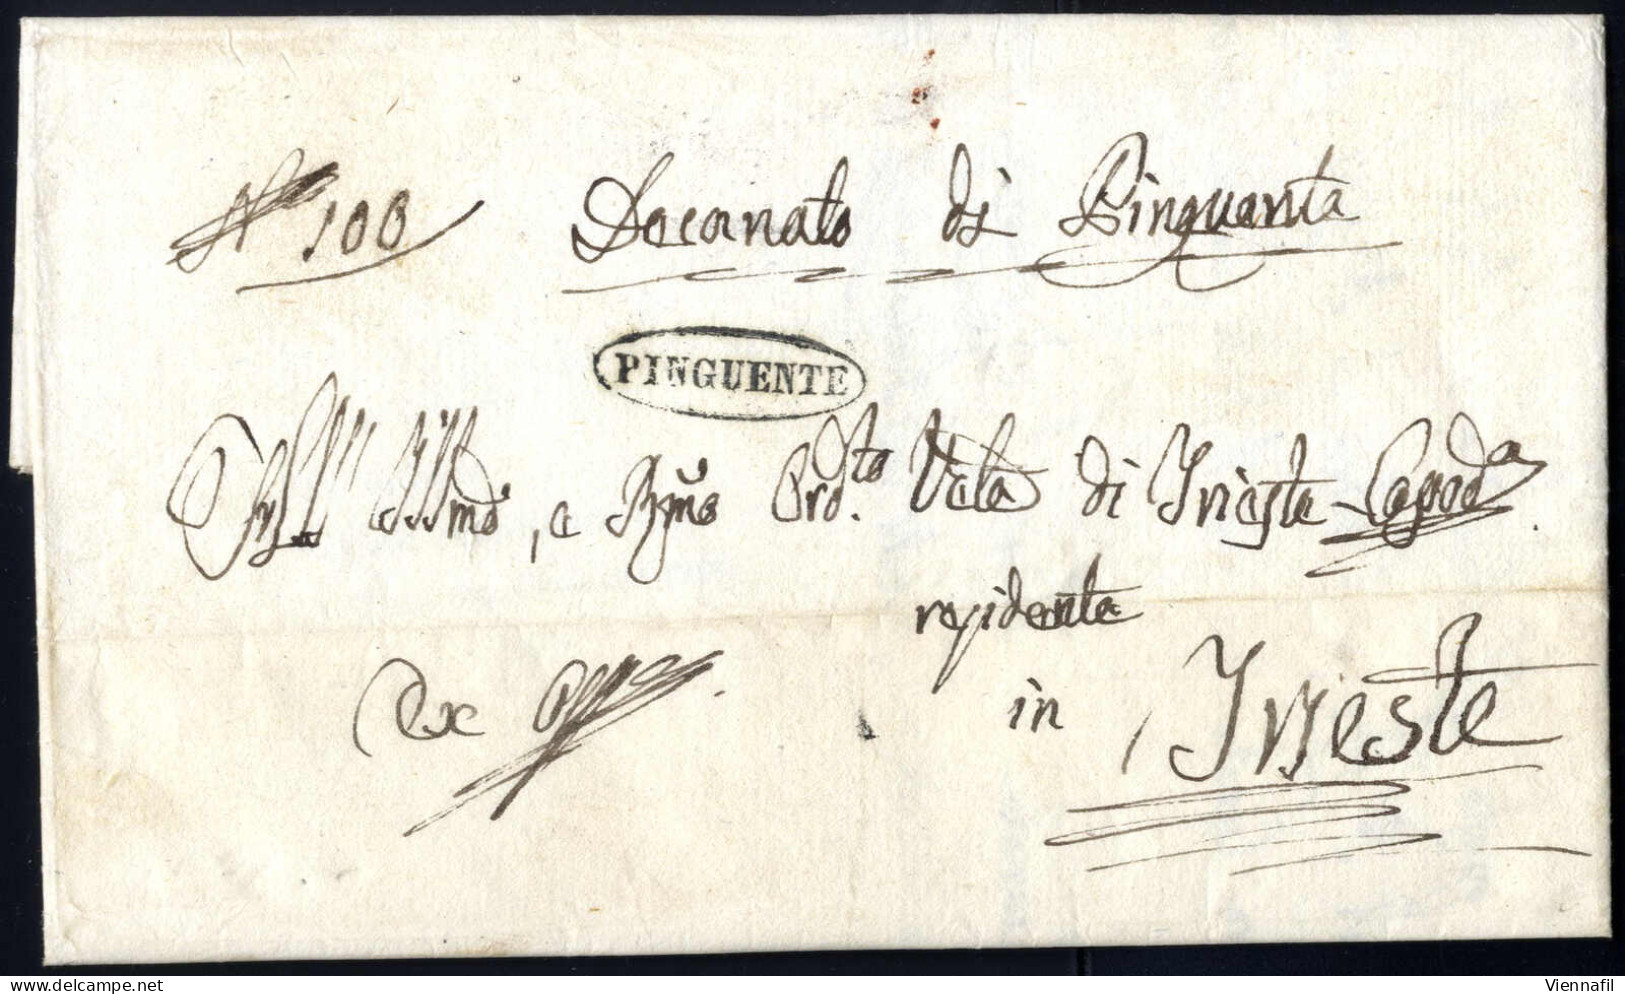 N.º 100 Decanato di Pinguente
PINGUENTE
All' Illmo, e Rmo Ord.to Vcle di Trieste-Capod.a
residente
in Trieste
Ex Off.
Viennafil